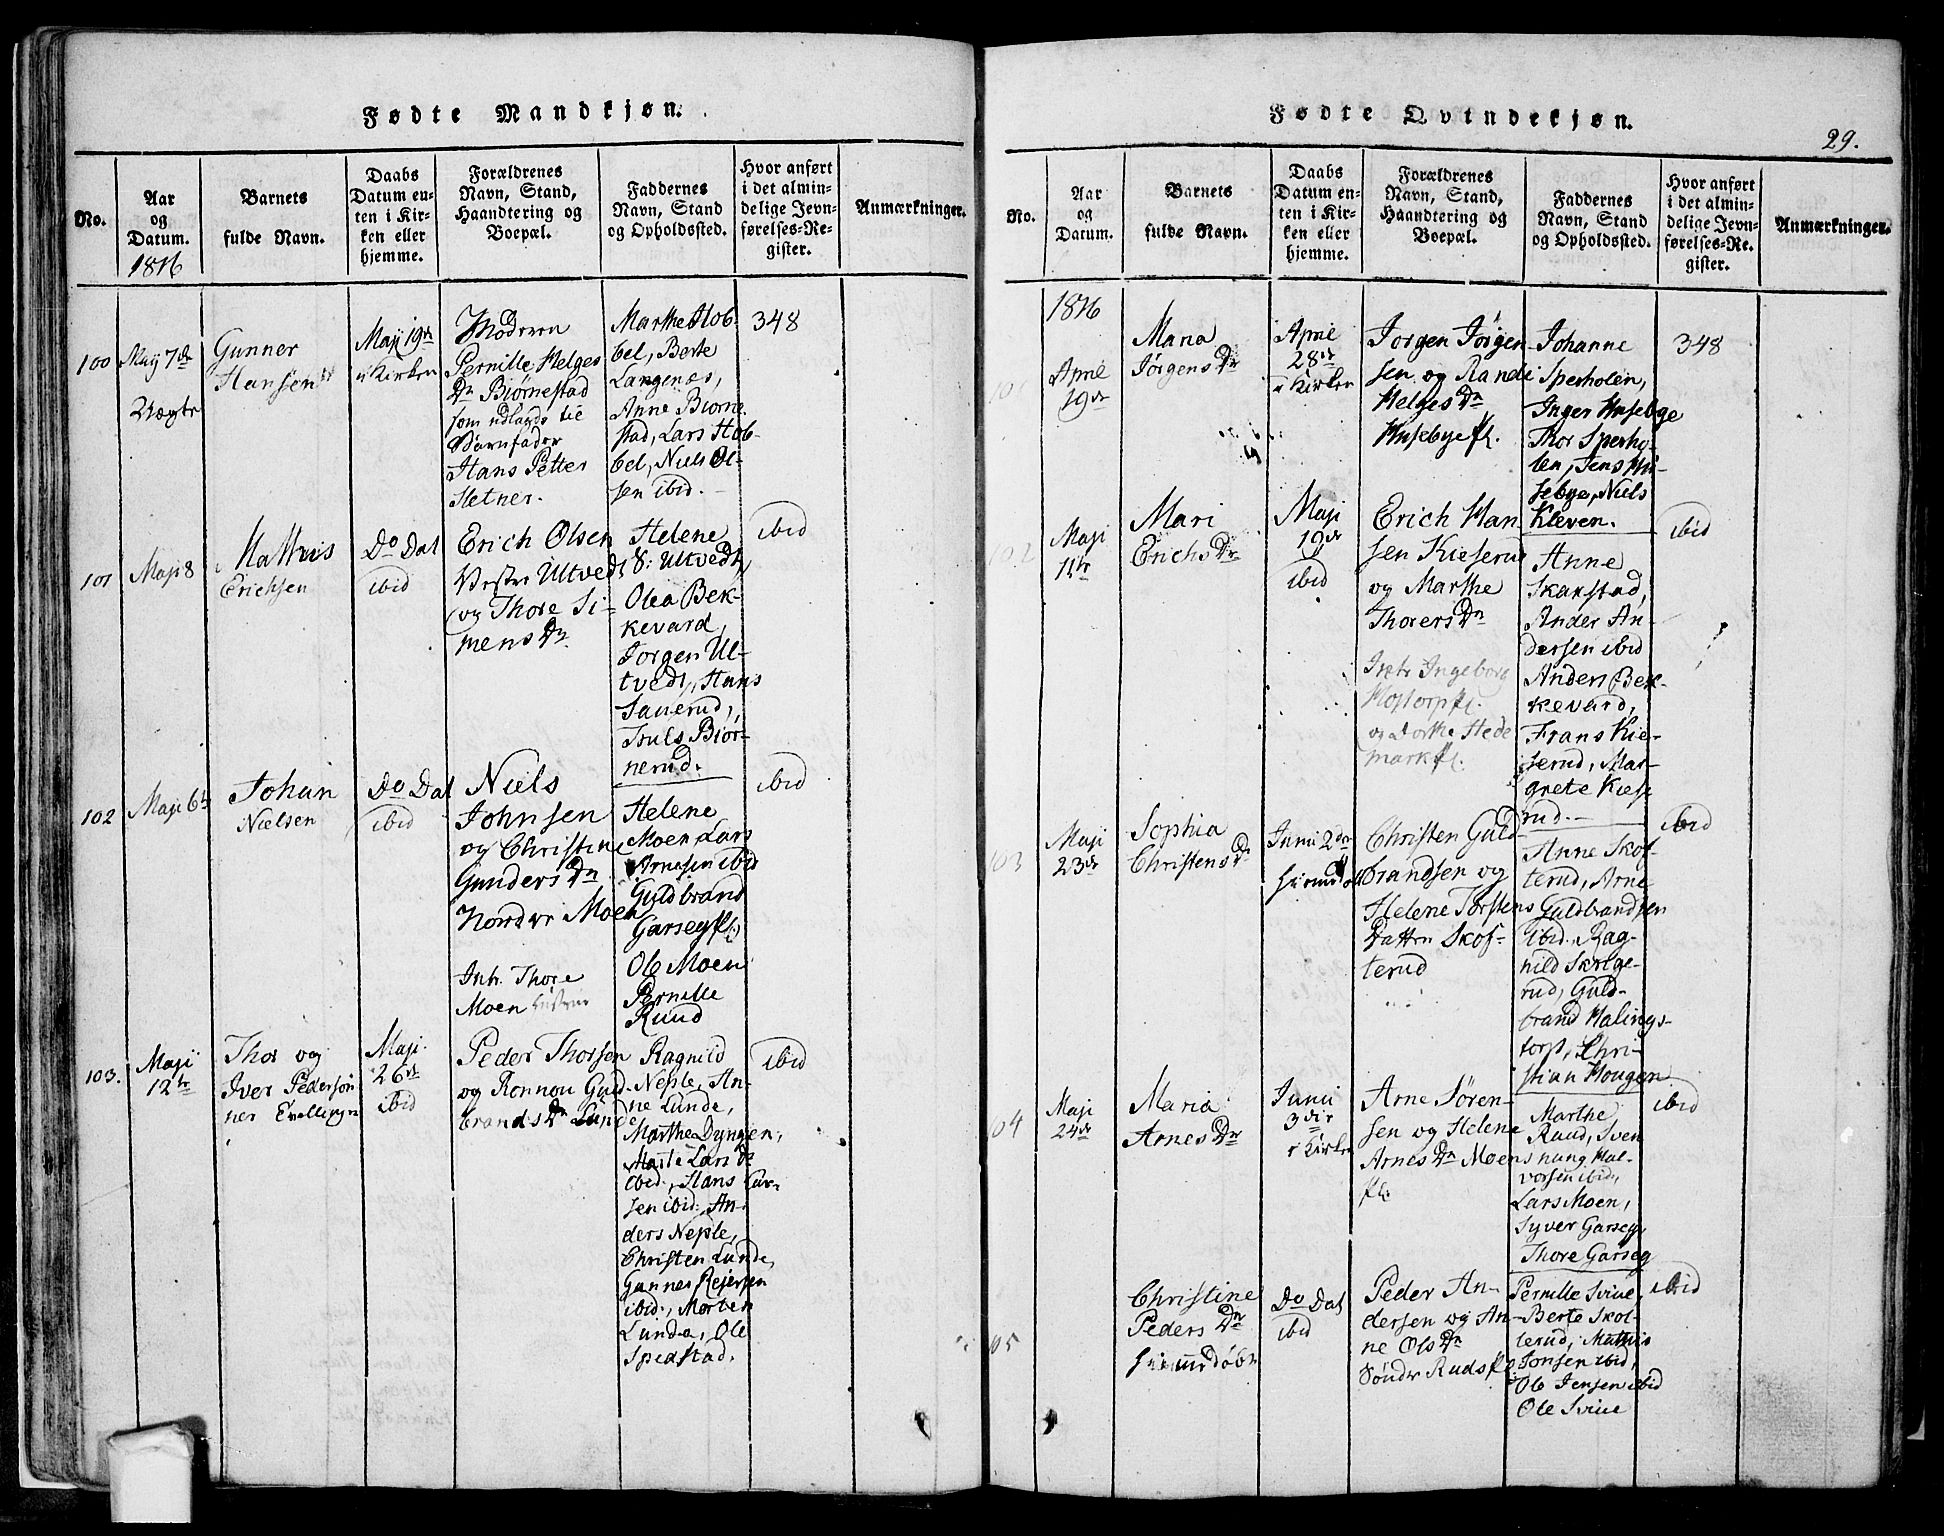 Fødte Mandkjøn.
No.
Aar
og
Datum.
1816
Barnets
fulde Navn.
Daabs
Datum en-
ten i Kir-
ken eller
hjemme.
Forældrenes
Navn, Stand,
Haandtering og
Boepæl.
Faddernes
Navn, Stand
og Opholdssted.
Hvor anført
i det almin-
delige Jevn-
førelses-Re-
gister.
Anmærkninger.
100
Maij 7de
Gunner
Hansen
Maji 19de
i Kirken
Moderen
Pernille Helges
Dr Biørnestad
som udlagde til
Barnfader
Hans Petter
Hetner.
Marthe Hob-
bel, Berte
Langenæs,
Anne Biørne
stad, Lars Hob-
bel, Niels Ol-
sen ibid.
348
101
Maji 8
Mathis
Erichsen
Do Dat
ibid
Erich Olsen
Vestre Ultvedt
og Thore Si-
mens Dr.
Helene
S: Ultvedt,
Olea Bek-
kevard,
Jørgen Ul-
tvedt, Hans
Sauerud,
Truls Biør-
nerud.
ibid
102
Maji 6te
Johan
Nielsen
Do Dat
ibid
Niels
Johnsen
og Christine
Gunders Dr
Nordre Moen
Intr. Thore
Moen
Helene
Moen Lars
Arnesen ibid
Guldbrand
Garseg
Ole Moen
Pernille
Ruud
ibid
103.
Maji
12te
Thor og
Iver Pedersøn
ner
Maji
26de
ibid
Peder Thorsen
og Ronnou Guld-
brands Dr Lunde
Ragnild
Nesle, An-
ne Lunde,
Marthe Dyngen,
Marte Lars Dr
ibid, Hans Lar-
sen ibid: An-
ders Nesle,
Christen Lunde,
Gunner Rejersen
ibid:, Morten
Lunde, Ole
Spedstad.
ibid
Fødte Qvindekjøn.
29.
No.
Aar
og
Datum.
Barnets
fulde Navn.
Daabs
Datum en-
ten i Kir-
ken eller
hjemme.
Forældrenes
Navn, Stand,
Haandtering og
Boepæl.
Faddernes
Navn, Stand
og Opholdssted.
Hvor anført
i det almin-
delige Jevn-
førelses-Re-
gister.
Anmærkninger.
1816
101
April
19de
Mana
Jørgens Dr
April
28de
i Kirken
Jørgen Jørgen-
sen og Randi
Helges Dr
Husebye
Johanne
Sperholen,
Inger Husebye
Thor Sperho-
len, Jens Hu-
sebye, Niels
Kleven.
348
102
Maji
11te
Mari
Erichs Dr
Maji
19de
ibid
Erich Han
sen Kieserud
og Marthe
Thorers Dr
Intr Ingeborg
og Dorthe Hede
mark
Anne
Skarstad,
Ander An-
dersen ibid
Anders Bek-
kevard,
Frans Kie-
serud, Mar-
grete Kiese
rud.
ibid
103
Maji
23de
Sophia
Christens Dr
Junii 2den
Christen Guld-
brandsen og
Helene Torstens
Datter Skof-
terud
Anne Skof-
terud, Arne
Guldbrandsen
ibid. Rag-
nild Skolge-
rud, Guld-
brand Malings-
torp, Chri-
stian Hougen
ibid
104
Maji
24de
Maria
Arnes Dr
Junii
3die
i Kirken
Arne Søren-
sen og Helene
Arnes Dr Moens
Marthe
Ruud, Sven
nung Hal-
vorsen ibid,
Lars Moen,
Syver Garseg,
Thore Garseg
ibid
105
Christine
Peders Dr
Do Dat
ibid
Peder An-
dersen og An-
ne Ols Dr
Sønder Ruds
Pernille Sviue,
Berte Skol-
lerud, Mathis
Jonsen ibid,
Ole Jensen ibid
Ole Sviue
ibid